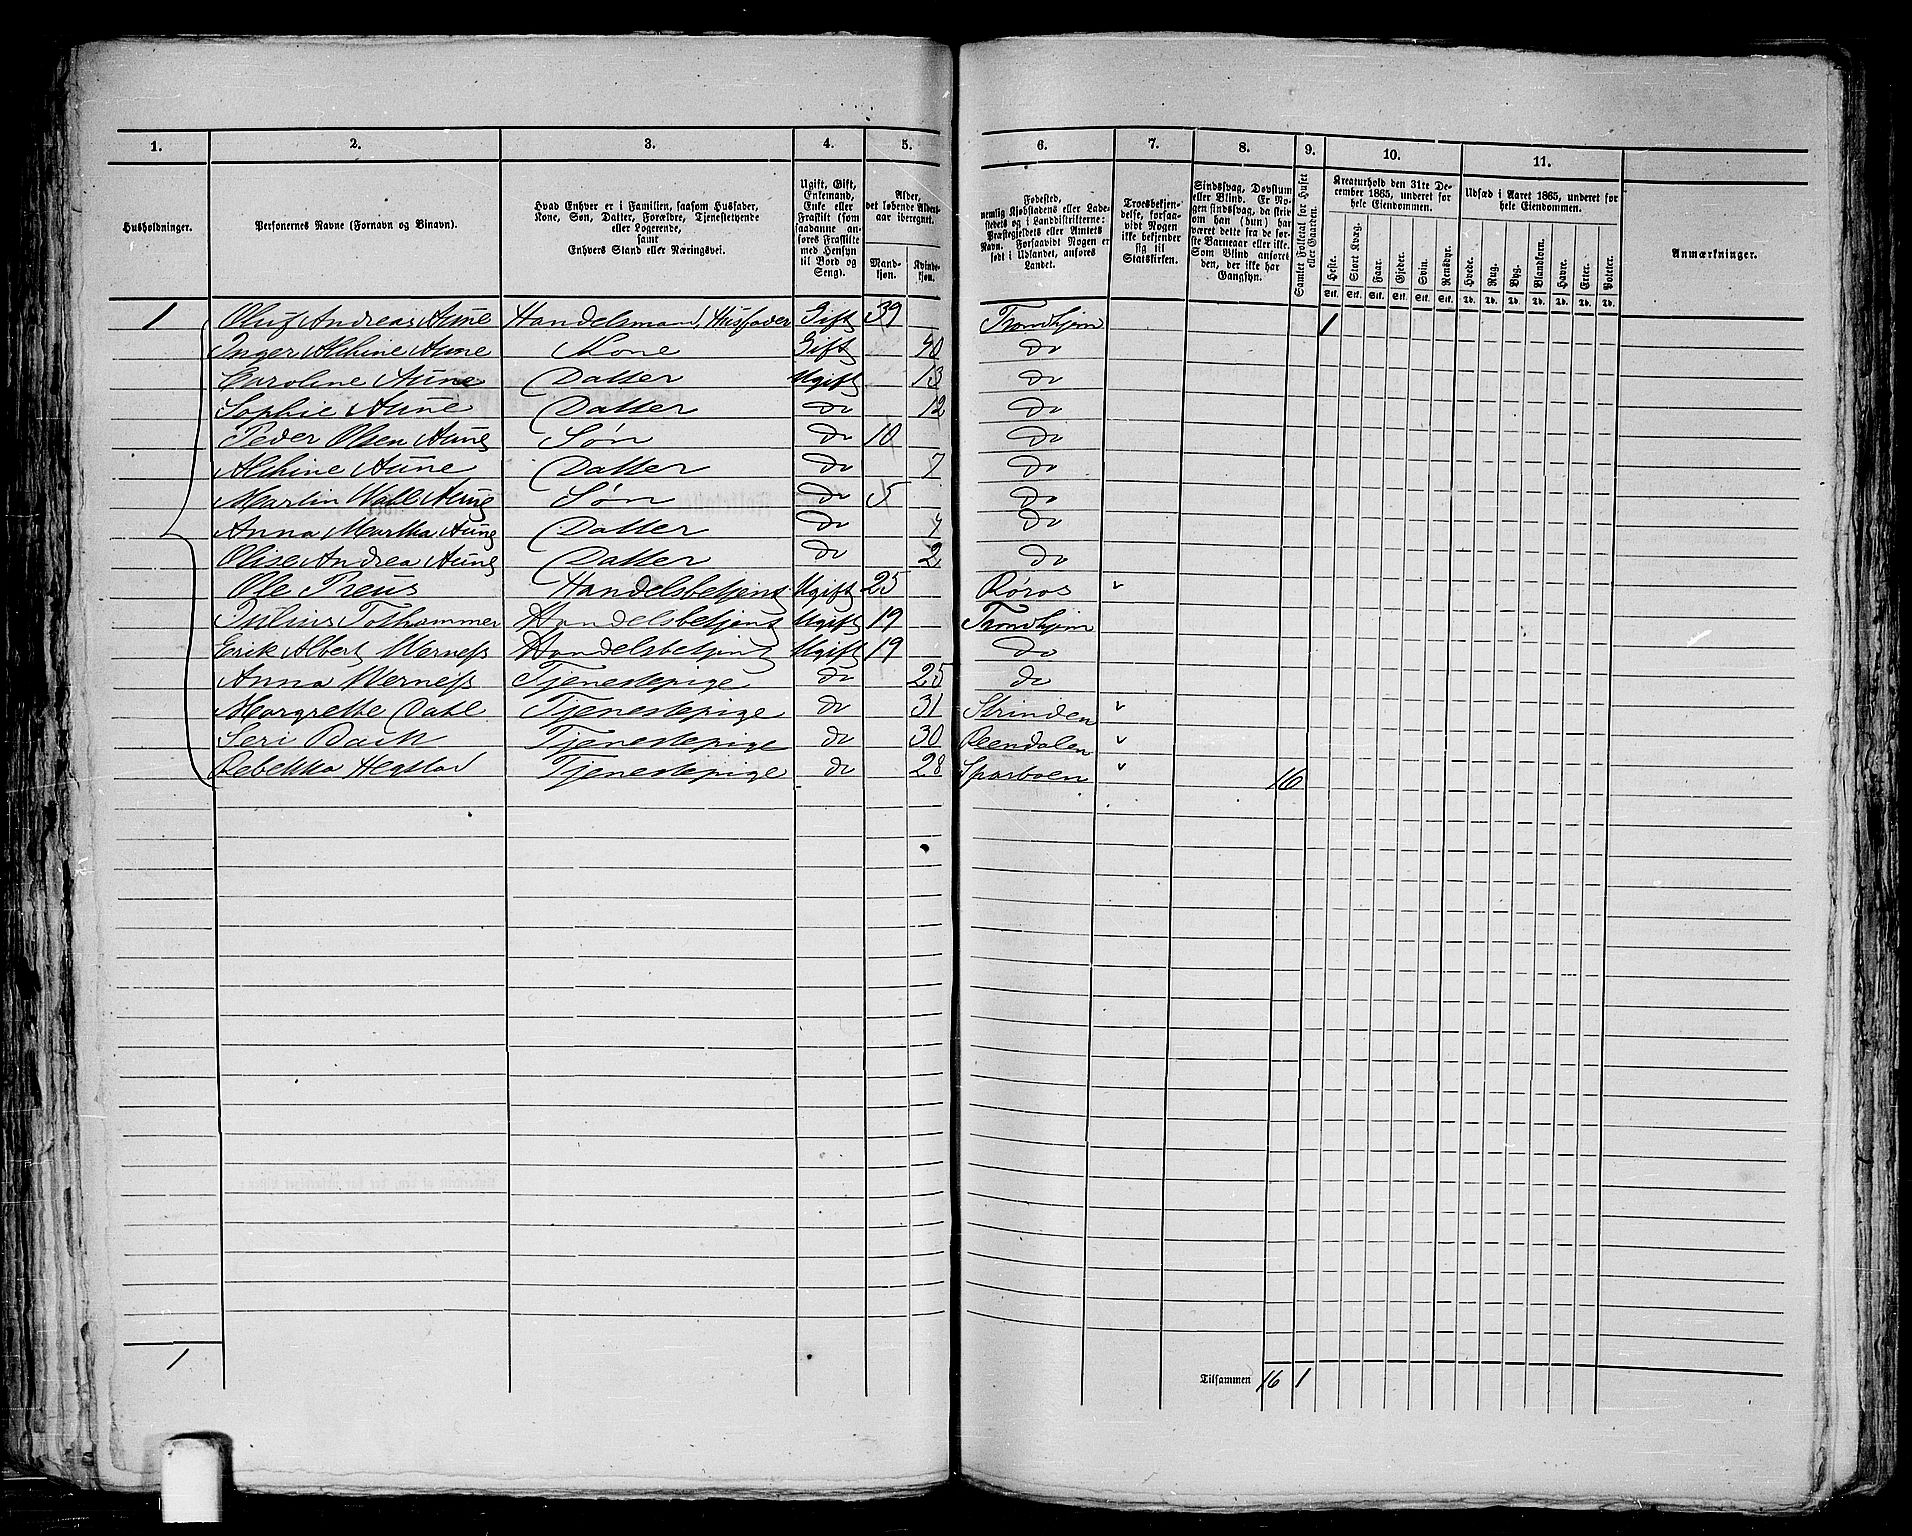 1. 2. 3. 4. 5. 6. 7. 8. 9. 10. 11.
Husholdninger.
Personernes Navne (Fornavn og Binavn).
Hvad Enhver er i Familien, saasom Husfader,
Kone, Søn, Datter, Forældre, Tjenestetyende
eller Logerende,
samt
Enhvers Stand eller Næringsvei.
Ugift, Gift,
Enkemand,
Enke eller
Fraskilt (som
saadanne an-
føres Fraskilte
med Hensyn
til Bord og
Seng).
Alder,
det løbende Alders-
aar iberegnet.
Mand-
kjøn.
Kvinde-
kjøn.
Fødested,
nemlig Kjøbstadens eller Lade-
stedets og i Landdistrikterne:
Præstegjeldets eller Amtets
Navn. Forsaavidt Nogen er
født i Udlandet, anføres
Landet.
Troesbekjen-
delse, forsaa-
vidt Nogen
ikke bekjender
sig til
Statskirken.
Sindssvag, Døvstum
eller Blind. Er No-
gen sindssvag, da skri-
ves om han (hun) har
været dette fra de før-
ste Barneaar eller ikke.
Som Blind anføres
den, der ikke har
Gangsyn.
Samlet Folketal for Huset
eller Gaarden.
Kreaturhold den 31te De-
cember 1865, underet for
hele Eiendommen.
Heste. Stort Kvæg. Faar. Gjeder. Svin. Rensdyr.
Stk. Stk. Stk. Stk. Stk. Stk.
Udsæd i Aaret 1865, underet for
hele Eiendommen.
Hvede. Rug. Byg. Blandkorn. Havre. Erter. Poteter.
Td. Td. Td. Td. Td. Td. Td.
Anmærkninger.
1 Oluf Andreas Aune Handelsmand, Husfader Gift 39 Trondhjem 1
Inger Alchine Aune Kone Gift 40 do
Caroline Aune Datter Ugift 13 do
Sophie Aune Datter do 12 do
Peder Olsen Aune Søn do 10 do
Alchine Aune Datter do 7 do
Martin Wall Aune Søn do 5 do
Anna Martha Aune Datter do 4 do
Olise Andrea Aune Datter do 2 do
Ole Preus Handelsbetjent Ugift 25 Røros
Julius Tolhammer Handelsbetjent Ugift 19 Trondhjem
Erik Albert Werness Handelsbetjent Ugift 19 do
Anna Werness Tjenestepige do 25 do
Margrethe Dahl Tjenestepige do 31 Strinden
Seri Bach Tjenestepige do 30 Reendalen
Rebekka Hegstad Tjenestepige do 28 Sparboen 16
1
Tilsammen 16 1